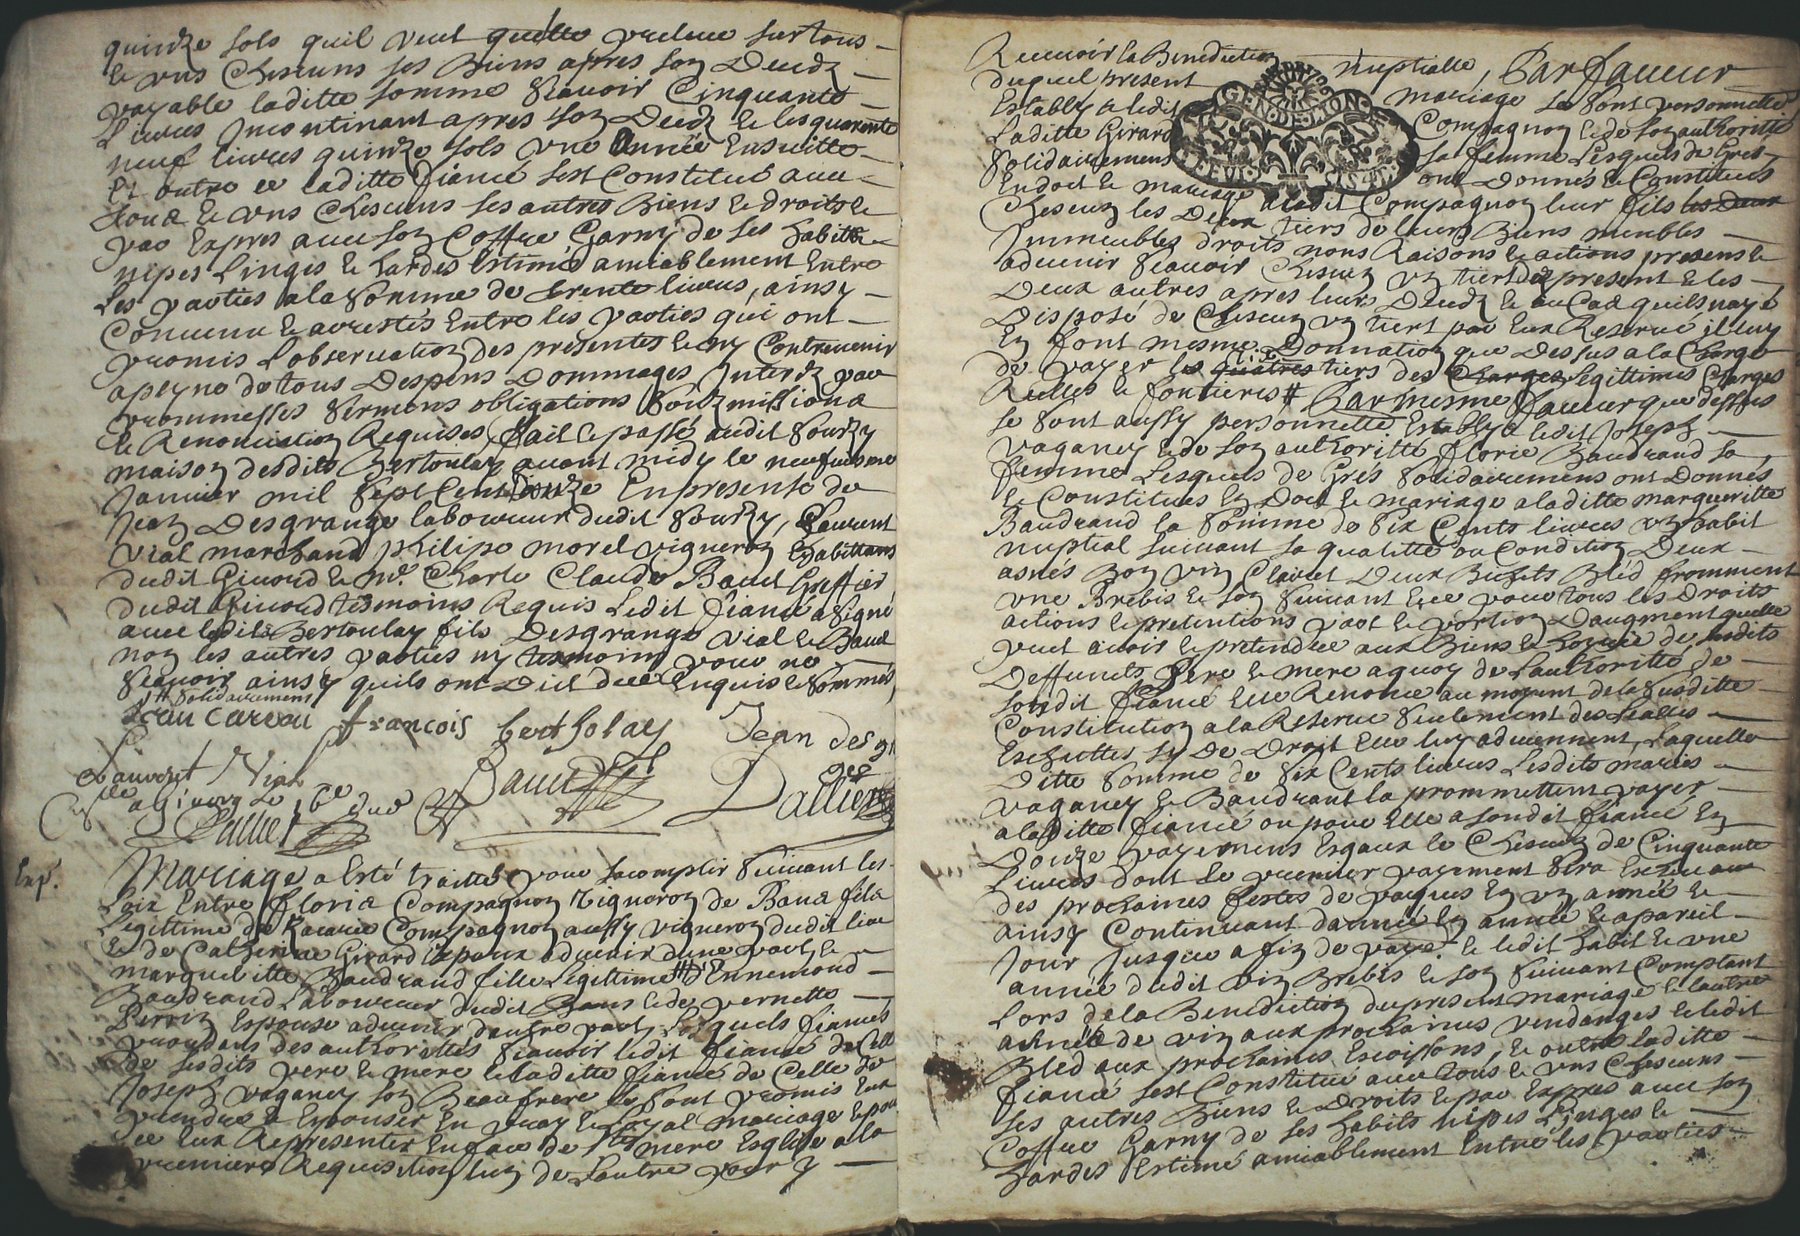 quinze sols quil veut quelle prelue sur tous
& uns Chescuns ses Biens apres son Decedz
payable laditte somme scauoir Cinquante
Liures Incontinant apres son Decedz & les quarente
neuf liures quinze sols une Année Ensuitte
Et outre ce laditte fiancé sest Constitué auec
tous & uns Chescuns ses autres Biens & droits &
par Expres auec son Coffre Garny de ses habits
nipes Linges & hardes Estimé amiablement Entre
Les parties ala somme de trente liures, ainsy
Conuenu & arrestés Entre les parties qui ont
promis Lobseruation des presentes & ny Contreuenir
apeyne de tous Despens Dommages Interdz par
prommesses sermens obligations soubzmissions
& Renonciation Requises, fait & passé audit Sourzy
maison desdits Bertoulay auant midy le neufuiesme
Januier mil sept Cent Douze En presense de
Jean Desgrange laboureur dudit Sourzy, Laurent
Vial marchand philipe morel vigneron habittans
dudit Giuord & me. Charle Claude Baud Greffier
dudit Giuord tesmoins Requis Ledit fiancé a signé
auec ledits Bertoulay fils Desgrange Vial & Baud
non les autres parties ny tesmoins pour ne
scauoir ainsy quils ont Dict de ce Enquis & sommés
# solidairement
Jean Careau françois bertholay Jean desgr
Lauront Vial Baud
Dallier
Mariage a Esté traitté pour sacomplir suiuant les
Loix Entre floris Compagnon Vigneron de Bans fils
Legittime de Compagnon aussy vigneron dudit lieu
& de Catherine Girard Espoux aduenir dune part, &
margueritte Baudrand fille Legittime # d'Ennemond
Baudrand Laboureur dudit Bans & de pernette
Perrin Espouse aduenir dautre part Lesquels fiancés
procedans des authorittés scauoir ledit fiancé de Celle
de sesdits pere & mere & laditte fiancé de Celle de
Joseph paganey son Beaufrere se sont promis Eux
prendre & Espouser En vray & Loyal mariage & pour
ce Eux Representer En face de Ste mere Esglise ala
premiere Requisition lun de Lautre pour y
Exp.
Receuoir la Benediction nuptialle, Par faueur
duquel present mariage se sont personnelle
Establys ledit Compagnon & de son authoritté
Laditte Girard sa femme Lesquels de Grés
solidairement ont Donnés & Constitués
En doct & mariage audit Compagnon leur fils les deux
Chescun les Deux tiers de leurs Biens meubles
Immeubles droits noms Raisons & actions presens &
aduenir scauoir Chescun un tiers des present & les
Deux autres apres leurs Decedz & au Cas quils nayé
Disposé de Chescun un tiers par Eux Reserué il luy
En font mesme Donnation que Dessus ala Charge
de payer les tiers des Charges Legittimes Charges
Reelles & fontieres # Par mesme faueur que dessus
se sont aussy personnelle Establys ledit Joseph
paganey & de son authoritté florie Baudrand sa
femme Lesquels de Grés solidairement ont Donnés
& Constitués En Doct & mariage a laditte margueritte
Baudrand la somme de six Cents liures un habit
nuptial suiuant sa qualitté ou Condition Deux
asnés Bon vin Clairet Deux Bichets Bled fromment
une Brebis & son suiuant & ce pour tous les Droits
actions & pretentions part & portion Daugment quelle
peut auoir & pretendre aux Biens & hoirie de sesdits
Deffunts Pere & mere a quoy de Lauthoritté de
sondit fiancé Elle Renonce au moyent de la susditte
Constitution ala Reserue seulement des Loialles
Escheuttes sy De Droit Elle luy aduiennent, Laquelle
Ditte somme de six Cents liures Lesdits mariés
paganey & Baudrant la prommettent payer
a laditte fiancé ou pour Elle a sondit fiancé En
Douze payemens Esgaux & Chescun de Cinquante
Liures dont Le premier payement sera
des prochaines festes de paques En un année &
ainsy Continuant dannée En année & apareil
Jour Jusque a fin de paye. & ledit habit & une
année dudit vin Brebis & son suiuant Comptant
Lors de la Benediction du present mariage & lautre
asnée de vin aux prochaines vendanges & ledit
Bled aux prochaines Escoissons, & outre laditte
fiancé sest Constitué auec tous & uns Chescuns
ses autres Biens & Droits & par Expres auec son
Coffre Garny de ses habits nipes Linges &
hardes Estimé amiablement Entre les parties